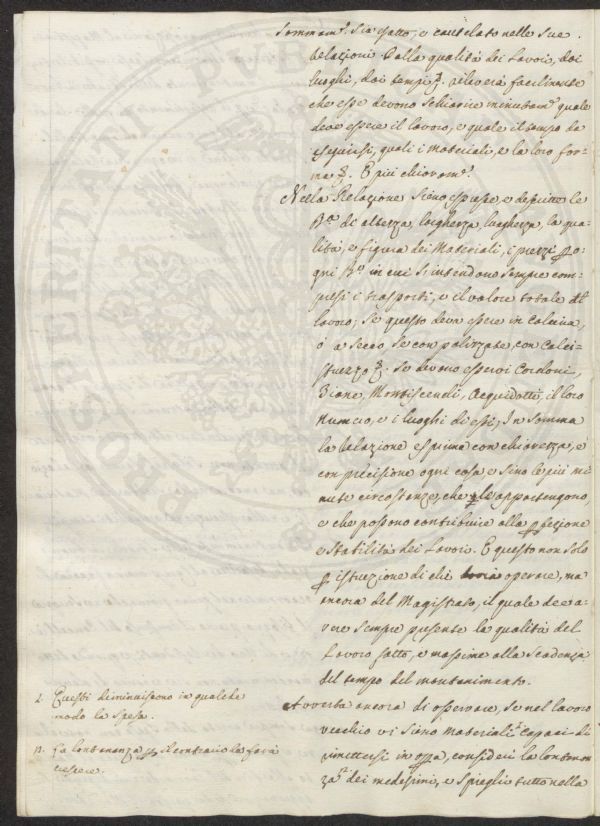 Sommam.e Sia esatto, e cautelato nelle sue
Relazioni Dalla qualità dei Lavori, dai
luoghi, dai tempi &. rileverà facilmente
che esse devono schiarire minutam.e quale
deve essere il lavoro, e quale il tempo da
eseguirsi, quali i Materiali, e la loro for-
ma &. E più chiaram.e
Nella Relazione Sieno espresse, e definite le
di altezza, larghezza, lunghezza, la qua-
lità, e figura dei Materiali, i prezzi p o-
gni in cui S'intendono sempre com-
presi i trasporti, e il valore totale del
lavoro; Se questo deve essere in Calcina,
ó a Secco se con palizzate, con Calci-
struzzo &. Se devono esservi Cordoni,
Acquedotti, il loro
Numero, e i luoghi di essi; In Somma
la Relazione esprima con chiarezza, e
con precisione ogni cosa e Sino le più mi
nute circostanze, che le appartengono,
e che possono contribuire alla pfezione
e Stabilità dei Lavori. E questo non Solo
p istruzione di chi dovrà operare, ma
ancora del Magistrato, il quale dee a-
vere Sempre presente la qualità del
Lavoro fatto, e massime alla Scadenza
del tempo del mantenimento.
Avverta ancora di osservare, Se nel lavoro
vecchio vi Sieno Materiali capaci di
rimettersi in opa, consideri la lontanan
za dei medesimi, e Spieghi tutto nella
1. Questi diminuiscono in qualche
modo la Spesa.
2. La lontananza p il contrario la farà
crescere.
PROSPERITATI PVBLI